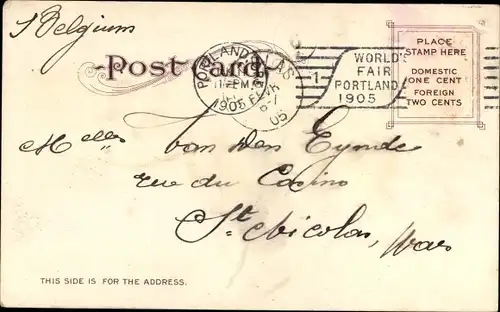 Belgium
Post Card
PORTLAND
1905
05
1
WORLD'S
FAIR
PORTLAND
1905
PLACE
STAMP HERE
DOMESTIC
ONE CENT
FOREIGN
TWO CENTS
Melles van den Eynde
rue du Casino
St Nicolas, Waes
THIS SIDE IS FOR THE ADDRESS.